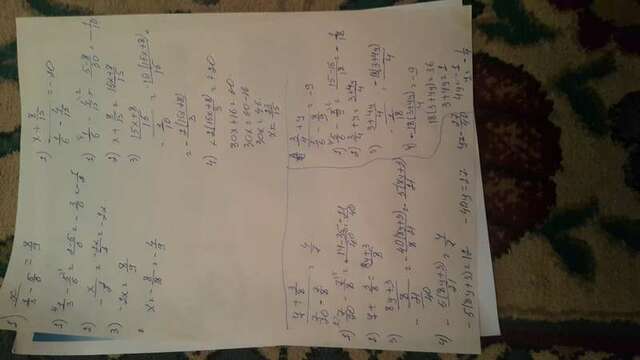 1) x / (1/3 - 5/6) = 8/9
1) 1/3 - 5/6 = (2-5)/6 = -3/6 = -1/2
2) x / (-1/2) = -2x/1 = -2x
3) -2x = 8/9
x = -8/18 = -4/9
2) (x + 8/15) / (1/6 - 4/15) = -20
1) 1/6 - 4/15 = (5-8)/30 = -1/10
2) x + 8/15 = (15x+8)/15
3) ((15x+8)/15) / (-1/10) = -10(15x+8)/15 =
= -2(15x+8)/3
4) -2(15x+8)/3 = -20
30x+16=60
30x=60-16
(y + 3/8) / (7/20 - 7/8) = 4/7
1) 7/20 - 7/8 = (14-35)/40 = -21/40
2) y + 3/8 = (8y+3)/8
3) ((8y+3)/8) / (-21/40) = -40(8y+3)/(8·21) = -5(8y+3)/21
4) -5(8y+3)/21 = 4/7
-5(8y+3)=12
-40y=27
y=-27/40
(3/4 + y) / (5/6 - 8/9) = -9
1) 5/6 - 8/9 = (15-16)/18 = -1/18
2) 3/4 + y = (3+4y)/4
3) ((3+4y)/4) / (-1/18) = -18(3+4y)/4
4) -18(3+4y)/4 = -9
18(3+4y)=36